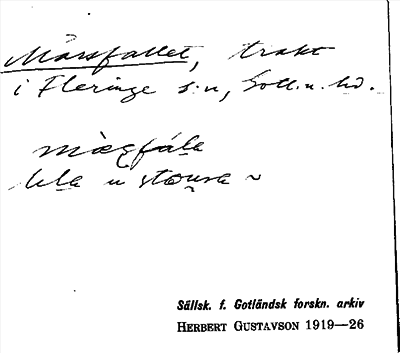 Mårsfallet, trakt
i Fleringe s:n, Gotl. n. hd.
màgfálа
lila u stoura ~
Sällsk. f. Gotländsk forskn. arkiv
HERBERT GUSTAVSON 1919—26